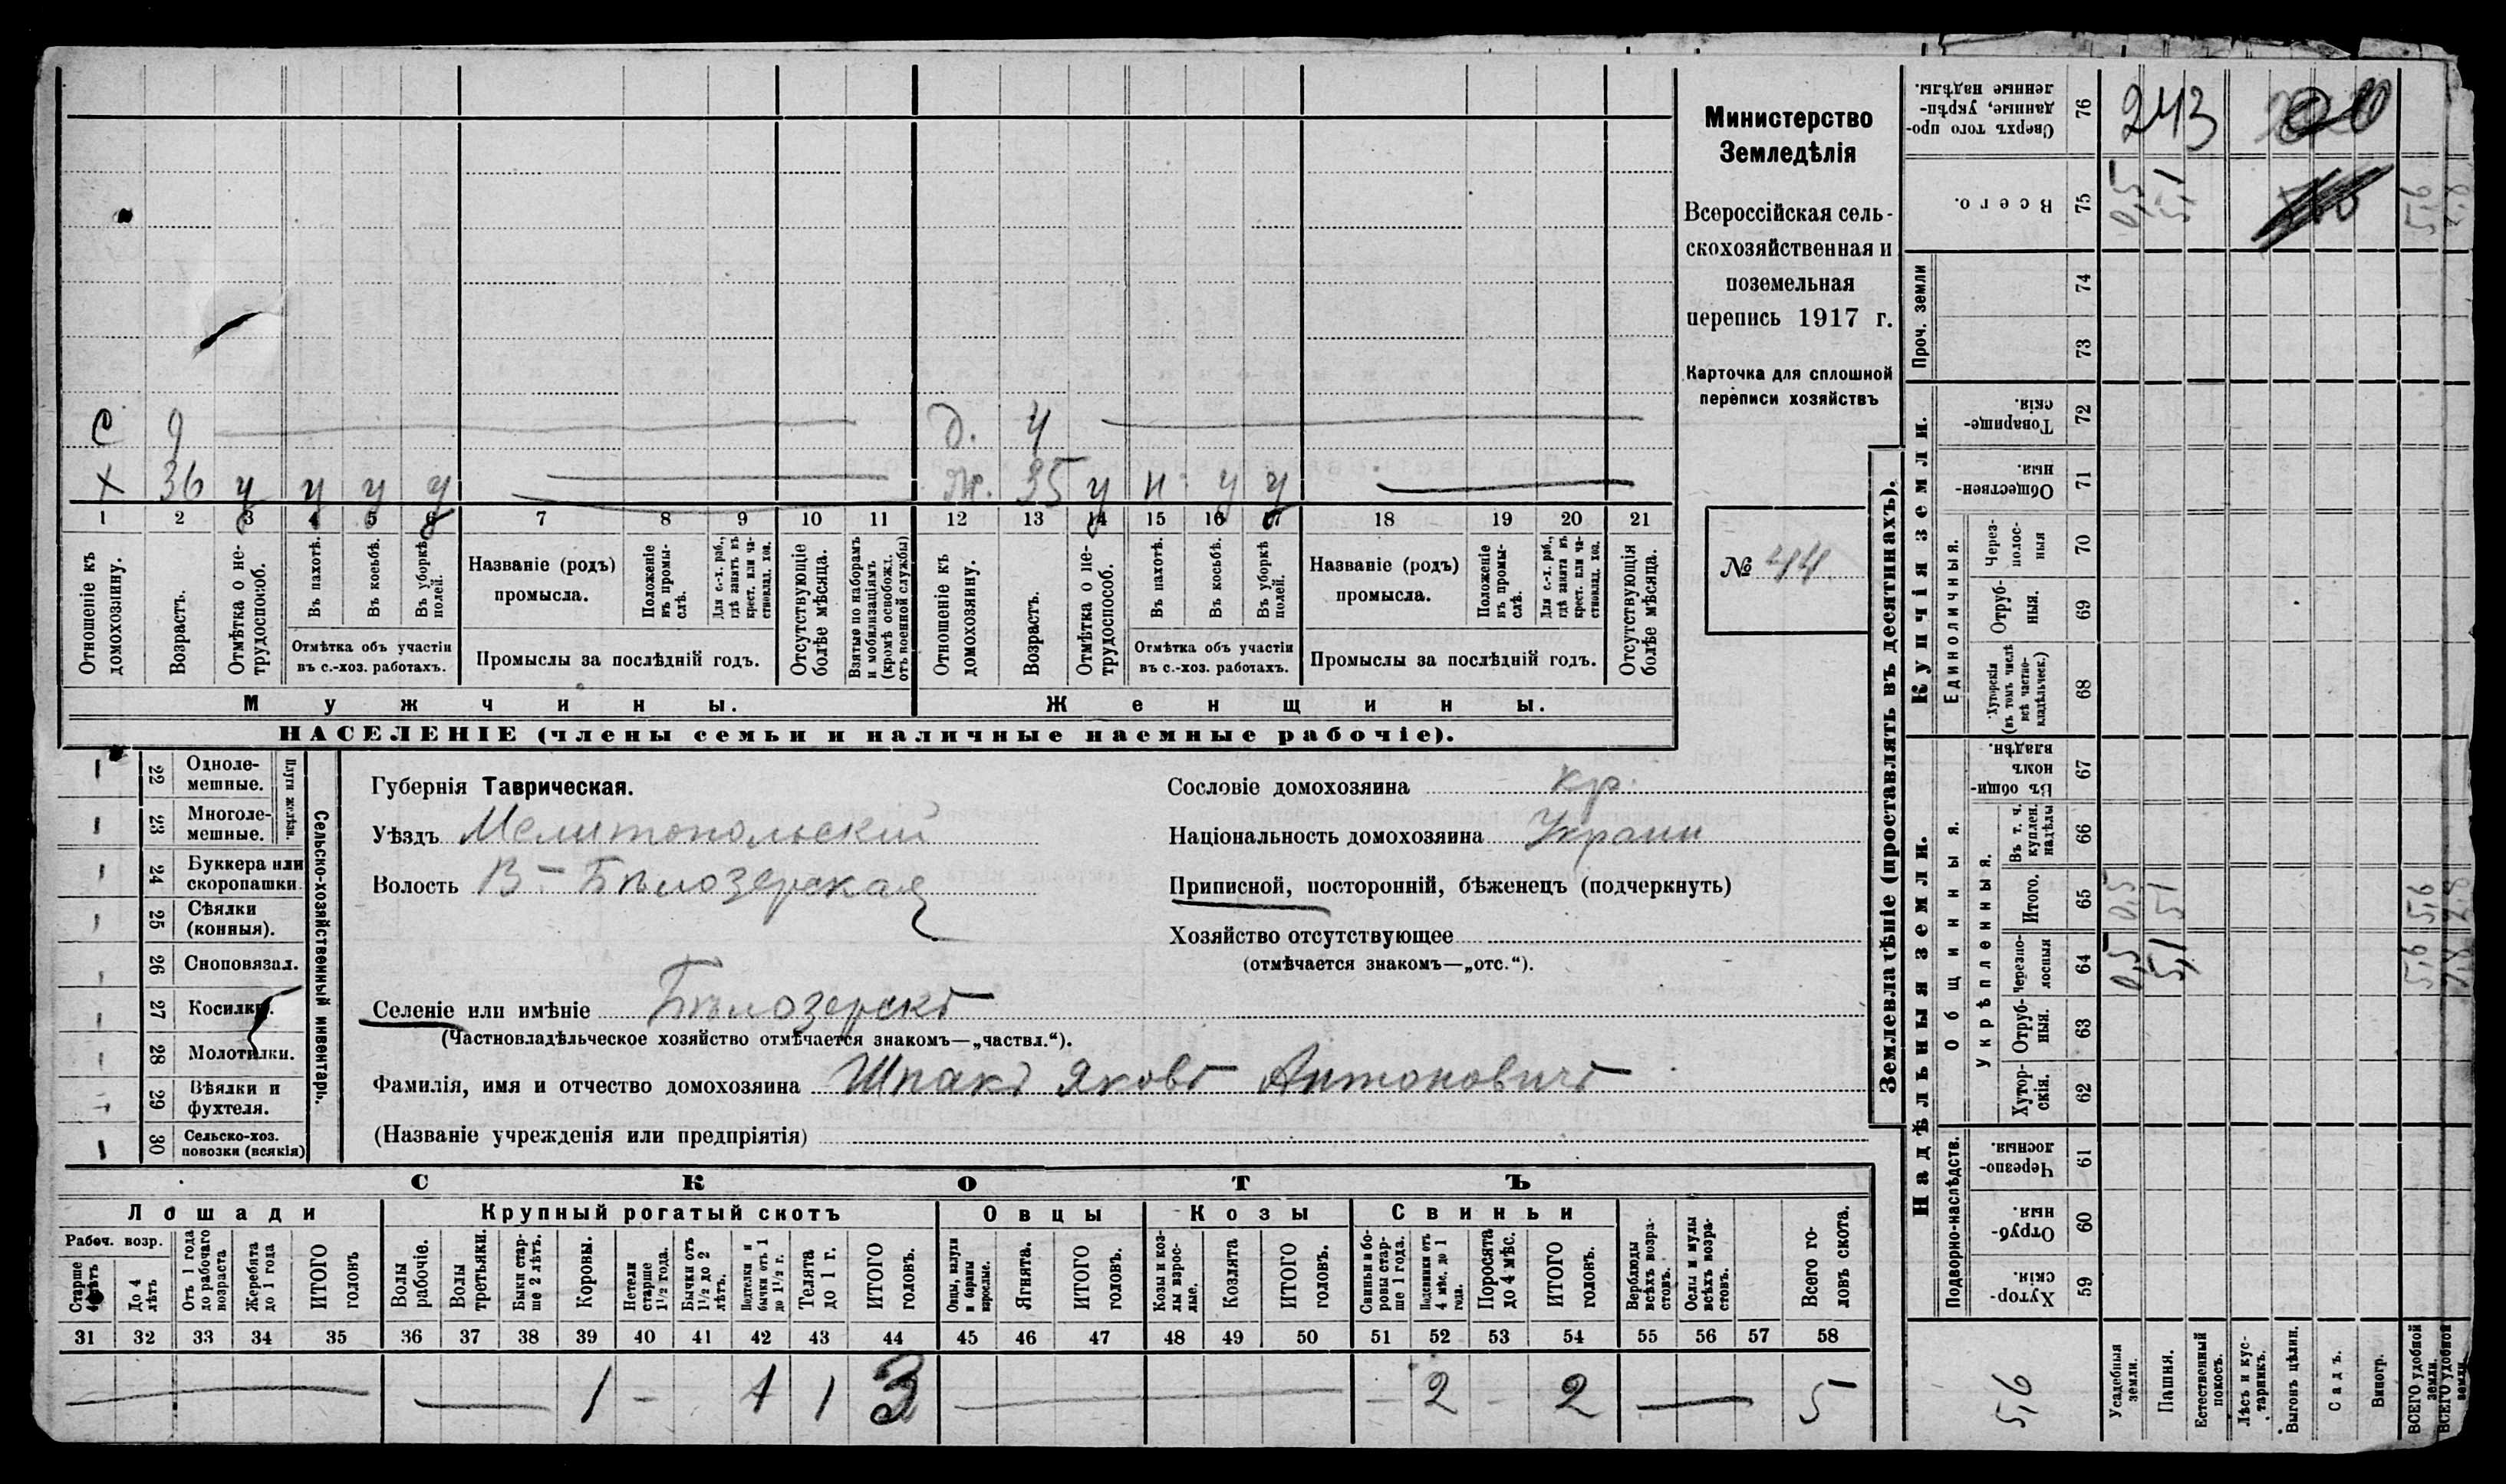 С 9 Д. 4
Х 36 у у у у Ж. 35 у н у у
1 2 3 4 5 6 7 8 9 10 11 12 13 14 15 16 17 18 19 20 21
Отношеніе къ домохозяину.
Возрастъ.
Отмѣтка о нетрудоспособ.
Въ пахотѣ.
Въ косьбѣ.
Въ уборкѣ полей.
Отмѣтка объ участіи
въ с.-хоз. работахъ.
Названіе (родъ)
промысла.
Положеніе въ промыслѣ.
Для с.-х. раб., гдѣ занятъ въ крест. или частновлад. хоз.
Промыслы за послѣдній годъ.
Отсутствующіе болѣе мѣсяца.
Взятые по наборамъ и мобилизаціямъ (кромѣ освобожд. отъ военной службы)
Отношеніе къ домохозяину.
Возрастъ.
Отмѣтка о нетрудоспособ.
Въ пахотѣ.
Въ косьбѣ.
Въ уборкѣ полей.
Отмѣтка объ участіи
въ с.-хоз. работахъ.
Названіе (родъ)
промысла.
Положеніе въ промыслѣ.
Для с.-х. раб., гдѣ занята въ крест. или частновлад. хоз.
Промыслы за послѣдній годъ.
Отсутствующія болѣе мѣсяца.
Мужчины. Женщины.
НАСЕЛЕНІЕ (члены семьи и наличные наемные рабочіе).
Министерство
Земледѣлія
Всероссійская сель-
скохозяйственная и
поземельная
перепись 1917 г.
Карточка для сплошной
переписи хозяйствъ
№ 44
22 Одноле-
мешные.
23 Многоле-
мешные.
Плуги желѣзн.
24 Буккера или
скоропашки
25 Сѣялки
(конныя).
26 Сноповязал.
27 Косилки.
28 Молотилки.
29 Вѣялки и
фухтеля.
30 Сельско-хоз.
повозки (всякія)
Сельско-хозяйственный инвентарь.
Губернія Таврическая.
Уѣздъ Мелитопольскій
Волость В-Бѣлозерская
Селеніе или имѣніе Бѣлозерскъ
(Частновладѣльческое хозяйство отмѣчается знакомъ—„частвл.“).
Фамилія, имя и отчество домохозяина Шпакъ Яковъ Антоновичъ
(Названіе учрежденія или предпріятія)
Сословіе домохозяина кр.
Національность домохозяина Украин
Приписной, посторонній, бѣженецъ (подчеркнуть)
Хозяйство отсутствующее
(отмѣчается знакомъ—„отс.“).
СКОТЪ
Лошади Крупный рогатый скотъ Овцы Козы Свиньи
Рабоч. возр.
Старше лѣтъ
До 4 лѣтъ
Отъ 1 года до рабочаго возраста
Жеребята до 1 года
ИТОГО головъ
Волы рабочіе.
Волы третьяки.
Быки старше 2 лѣтъ.
Коровы.
Нетели старше 1½ года.
Бычки отъ 1½ до 2 лѣтъ.
Подтелки и бычки отъ 1 до 1½ г.
Телята до 1 г.
ИТОГО головъ.
Овцы, валухи и бараны взрослые.
Ягнята.
ИТОГО головъ.
Козы и козлы взрослые.
Козлята
ИТОГО головъ.
Свиньи и боровы старше 1 года.
Подсвинки отъ 4 мѣс. до 1 года.
Поросята до 4 мѣс.
ИТОГО головъ.
Верблюды всѣхъ возрастовъ.
Ослы и мулы всѣхъ возрастовъ.
Всего головъ скота.
31 32 33 34 35 36 37 38 39 40 41 42 43 44 45 46 47 48 49 50 51 52 53 54 55 56 57 58
1 – 1 1 3 – 2 – 2 5
Землевладѣніе (проставлять въ десятинахъ).
Надѣльныя земли.
Купчія земли.
Проч. земли
Подворно-наслѣдств.
Общинныя.
Укрѣпленныя.
Единоличныя.
Сверхъ того проданные, укрѣпленные надѣлы. 76 243
Всего. 75 0,5 5,1 5,6 2,8
74
73
Товарищескія. 72
Общественныя. 71
Черезполосныя 70
Отрубныя. 69
Хуторскія (въ томъ числѣ всѣ частновладѣльческ.) 68
Въ общинномъ владѣн. 67
Въ т. ч. куплен. надѣлы 66
Итого. 65 0,5 51 5,6 2,8
Черезполосныя 64 0,5 5,1 5,6 2,8
Отрубныя. 63
Хуторскія. 62
Черезполосныя. 61
Отрубныя. 60
Хуторскія. 59
5,6
Усадебныя земли.
Пашня.
Естественный покосъ.
Лѣсъ и кустарникъ.
Выгонъ цѣлин.
Садъ.
Виногр.
ВСЕГО удобной земли.
ВСЕГО удобной земли.